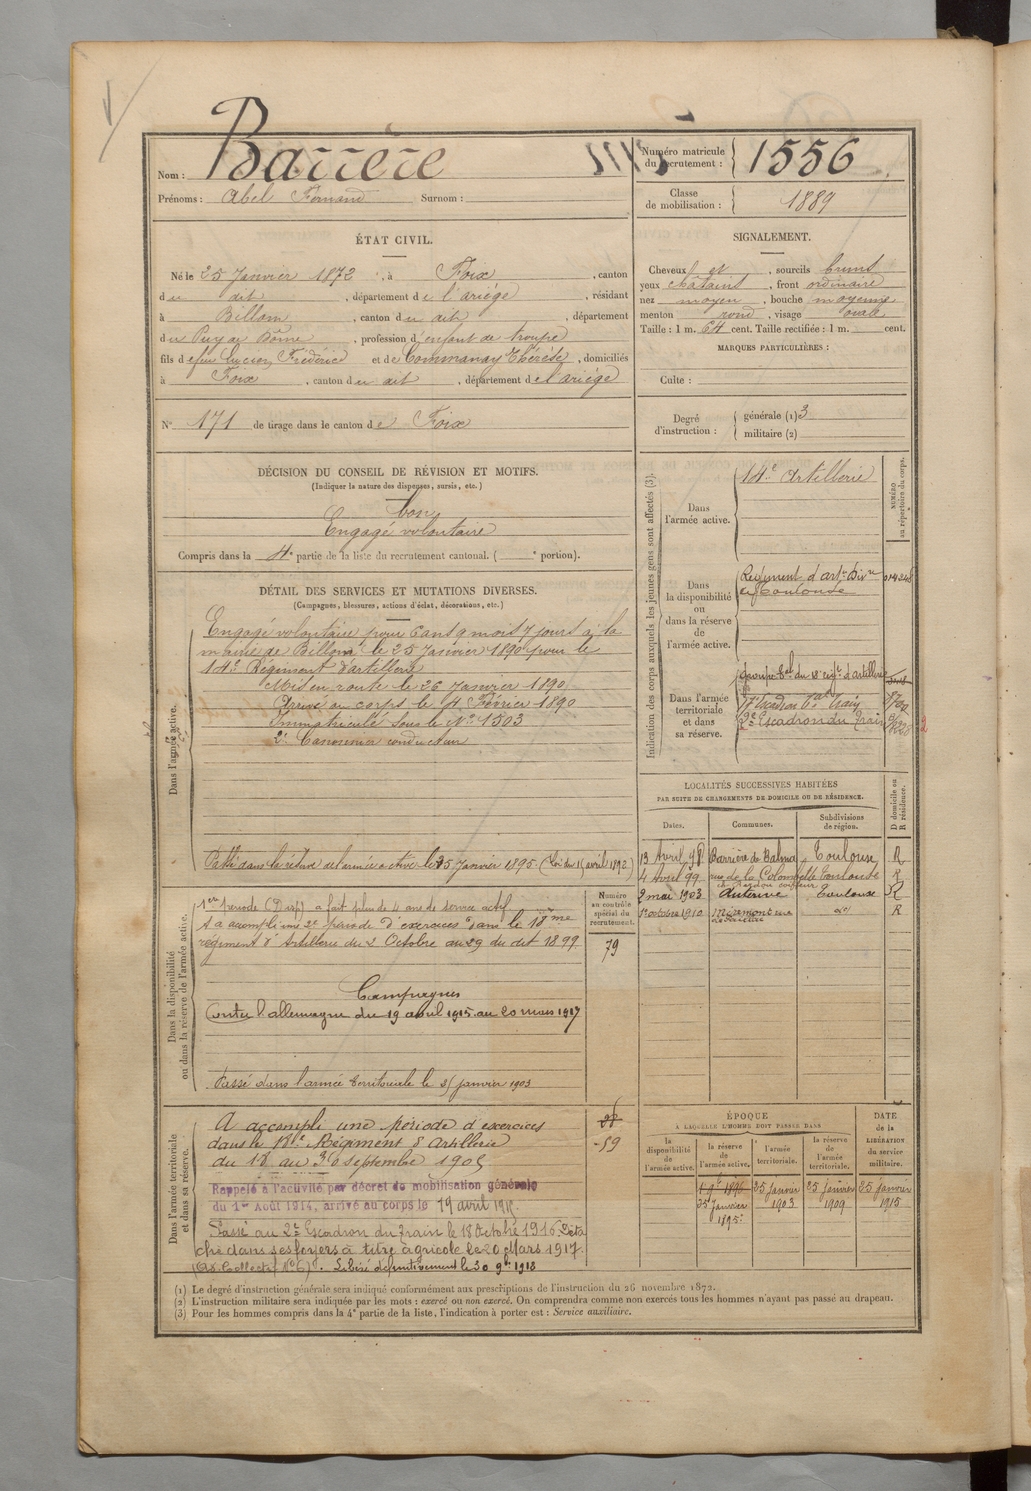 Nom : Barrère
Prénoms : Abel Fernand Surnom :
Numéro matricule du recrutement : 1556
Classe de mobilisation : 1889
ÉTAT CIVIL.
Né le 25 Janvier 1872, à Foix, canton
du dit, département de l'ariége, résidant
à Billom, canton du dit, département
du Puy de Dôme, profession d'enfant de troupe
fils de feu Lucien Frédéric et de Commanay Thérèse, domiciliés
à Foix, canton du dit, département de l'ariége
N° 171 de tirage dans le canton de Foix
SIGNALEMENT.
Cheveux et, sourcils bruns
yeux chatains, front ordinaire
nez moyen, bouche moyenne
menton rond, visage ovale
Taille : 1 m. 64 cent. Taille rectifiée : 1 m. cent.
MARQUES PARTICULIÈRES :
Culte :
Degré d'instruction : générale (1) 3
militaire (2)
DÉCISION DU CONSEIL DE RÉVISION ET MOTIFS.
(Indiquer la nature des dispenses, sursis, etc.)
bon
Engagé volontaire
Compris dans la 4e partie de la liste du recrutement cantonal. ( e portion).
DÉTAIL DES SERVICES ET MUTATIONS DIVERSES.
(Campagnes, blessures, actions d'éclat, décorations, etc.)
Dans l'armée active.
Engagé volontaire pour 6 ans 9 mois 7 jours à la
mairie de Billom le 25 Janvier 1890 pour le
14e Régiment d'artillerie
Mis en route le 26 Janvier 1890
Arrivé au corps le 4 Février 1890
Immatriculé sous le N° 1503
2e Canonnier conducteur
Passé dans la réserve de l'armée active le 25 Janvier 1895 (Loi du 19 avril 1892)
Dans la disponibilité ou dans la réserve de l'armée active.
1ere période (Disp) a fait plus de 4 ans de service actif
A accompli une 2e période d'exercices dans le 18me
régiment d'Artillerie du 2 Octobre au 29 du dit 1899
Campagnes
Contre l'allemagne du 19 avril 1915 au 20 mars 1917
Passé dans l'armée territoriale le 25 janvier 1903
Numéro au contrôle spécial du recrutement.
79
Dans l'armée territoriale et dans sa réserve.
A accompli une période d'exercices
dans le 18e Régiment d'Artillerie
du 18 au 30 septembre 1905
Rappelé à l'activité par décret de mobilisation générale
du 1er Août 1914, arrivé au corps le 19 avril 1915.
Passé au 2e Escadron du train le 18 Octobre 1916. Déta
ché dans ses foyers à titre agricole le 20 Mars 1917.
Libéré définitivement le 30 9bre 1918
-59
Indication des corps auxquels les jeunes gens sont affectés (3).
NUMÉRO au répertoire du corps.
Dans l'armée active.
14e Artillerie
Dans la disponibilité ou dans la réserve de l'armée active.
Régiment d'arte Divre
de Toulouse
Dans l'armée territoriale et dans sa réserve.
Groupe Tal du 18e régt d'artillerie
17e Escadron Tal Train
2e Escadron du Train
LOCALITÉS SUCCESSIVES HABITÉES
PAR SUITE DE CHANGEMENTS DE DOMICILE OU DE RÉSIDENCE.
Dates. Communes. Subdivisions de région. D domicile ou R résidence.
13 Avril 98 Barrière de Balma Toulouse R
4 Avril 99 rue de la Colombette Toulouse R
2 mai 1903 Auterive Toulouse R
1er octobre 1910 Miremont do R
ÉPOQUE
A LAQUELLE L'HOMME DOIT PASSER DANS
la disponibilité de l'armée active. la réserve de l'armée active. l'armée territoriale. la réserve de l'armée territoriale.
DATE de la LIBÉRATION du service militaire.
1er 9bre 1896 25 janvier 1903 25 janvier 1909 25 janvier 1915
25 janvier 1895
(1) Le degré d'instruction générale sera indiqué conformément aux prescriptions de l'instruction du 26 novembre 1872.
(2) L'instruction militaire sera indiquée par les mots : exercé ou non exercé. On comprendra comme non exercés tous les hommes n'ayant pas passé au drapeau.
(3) Pour les hommes compris dans la 4e partie de la liste, l'indication à porter est : Service auxiliaire.